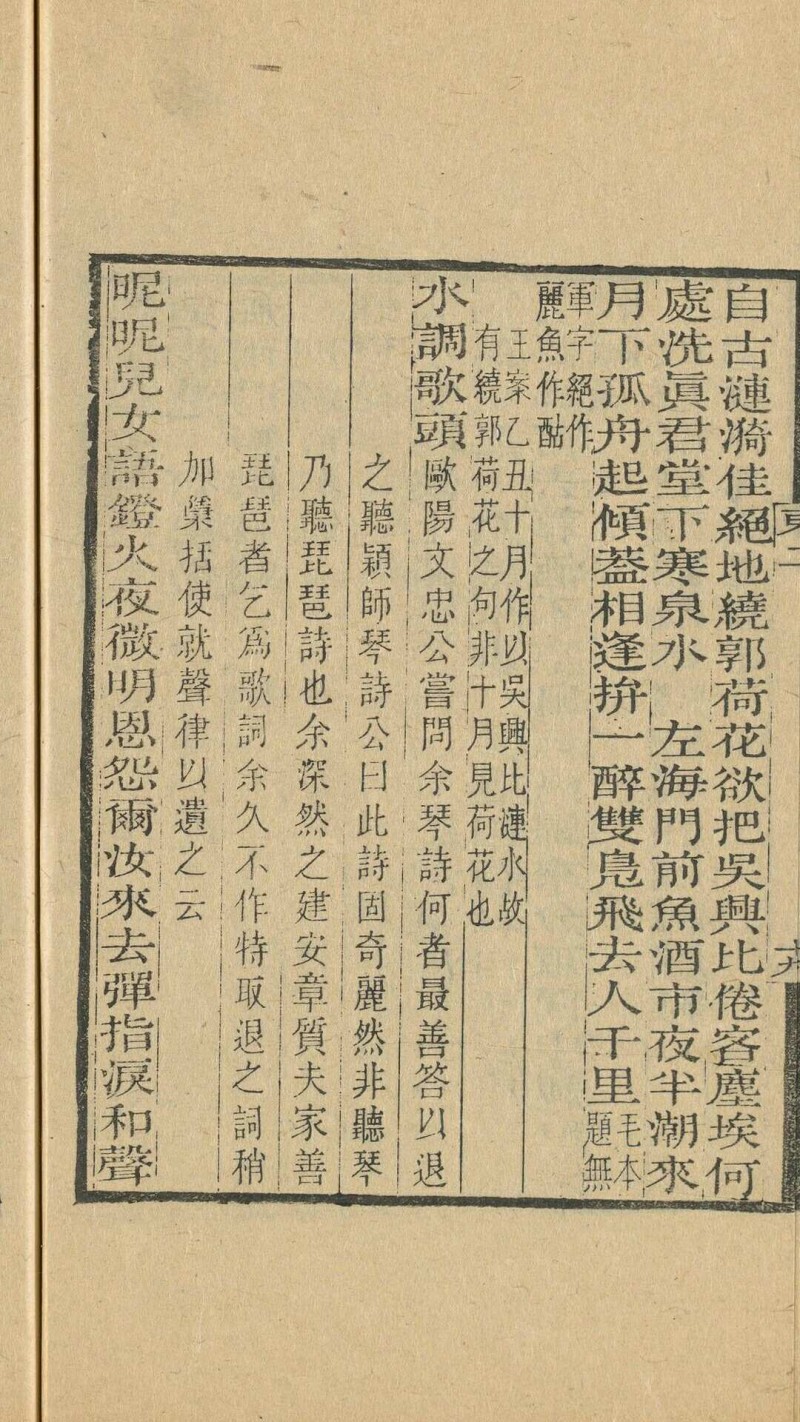 自古漣漪佳絕地繞郭荷花欲把吳興比倦客塵埃何
處洗眞君堂下寒泉水　左海門前魚酒市夜半潮來
月下孤舟起傾葢相逢拚一醉雙鳧飛去人千里毛本
題無
軍字絕作
麗魚作酤
王案乙丑十月作以吳興比漣水故
有繞郭荷花之句非十月見荷花也
水調歌頭歐陽文忠公嘗問余琴詩何者最善答以退
之聽穎師琴詩公曰此詩固奇麗然非聽琴
乃聽琵琶詩也余深然之建安章質夫家善
琵琶者乞爲歌詞余久不作特取退之詞稍
加櫽括使就聲律以遺之云
呢呢兒女語鐙火夜微明恩怨爾汝來去彈指淚和聲